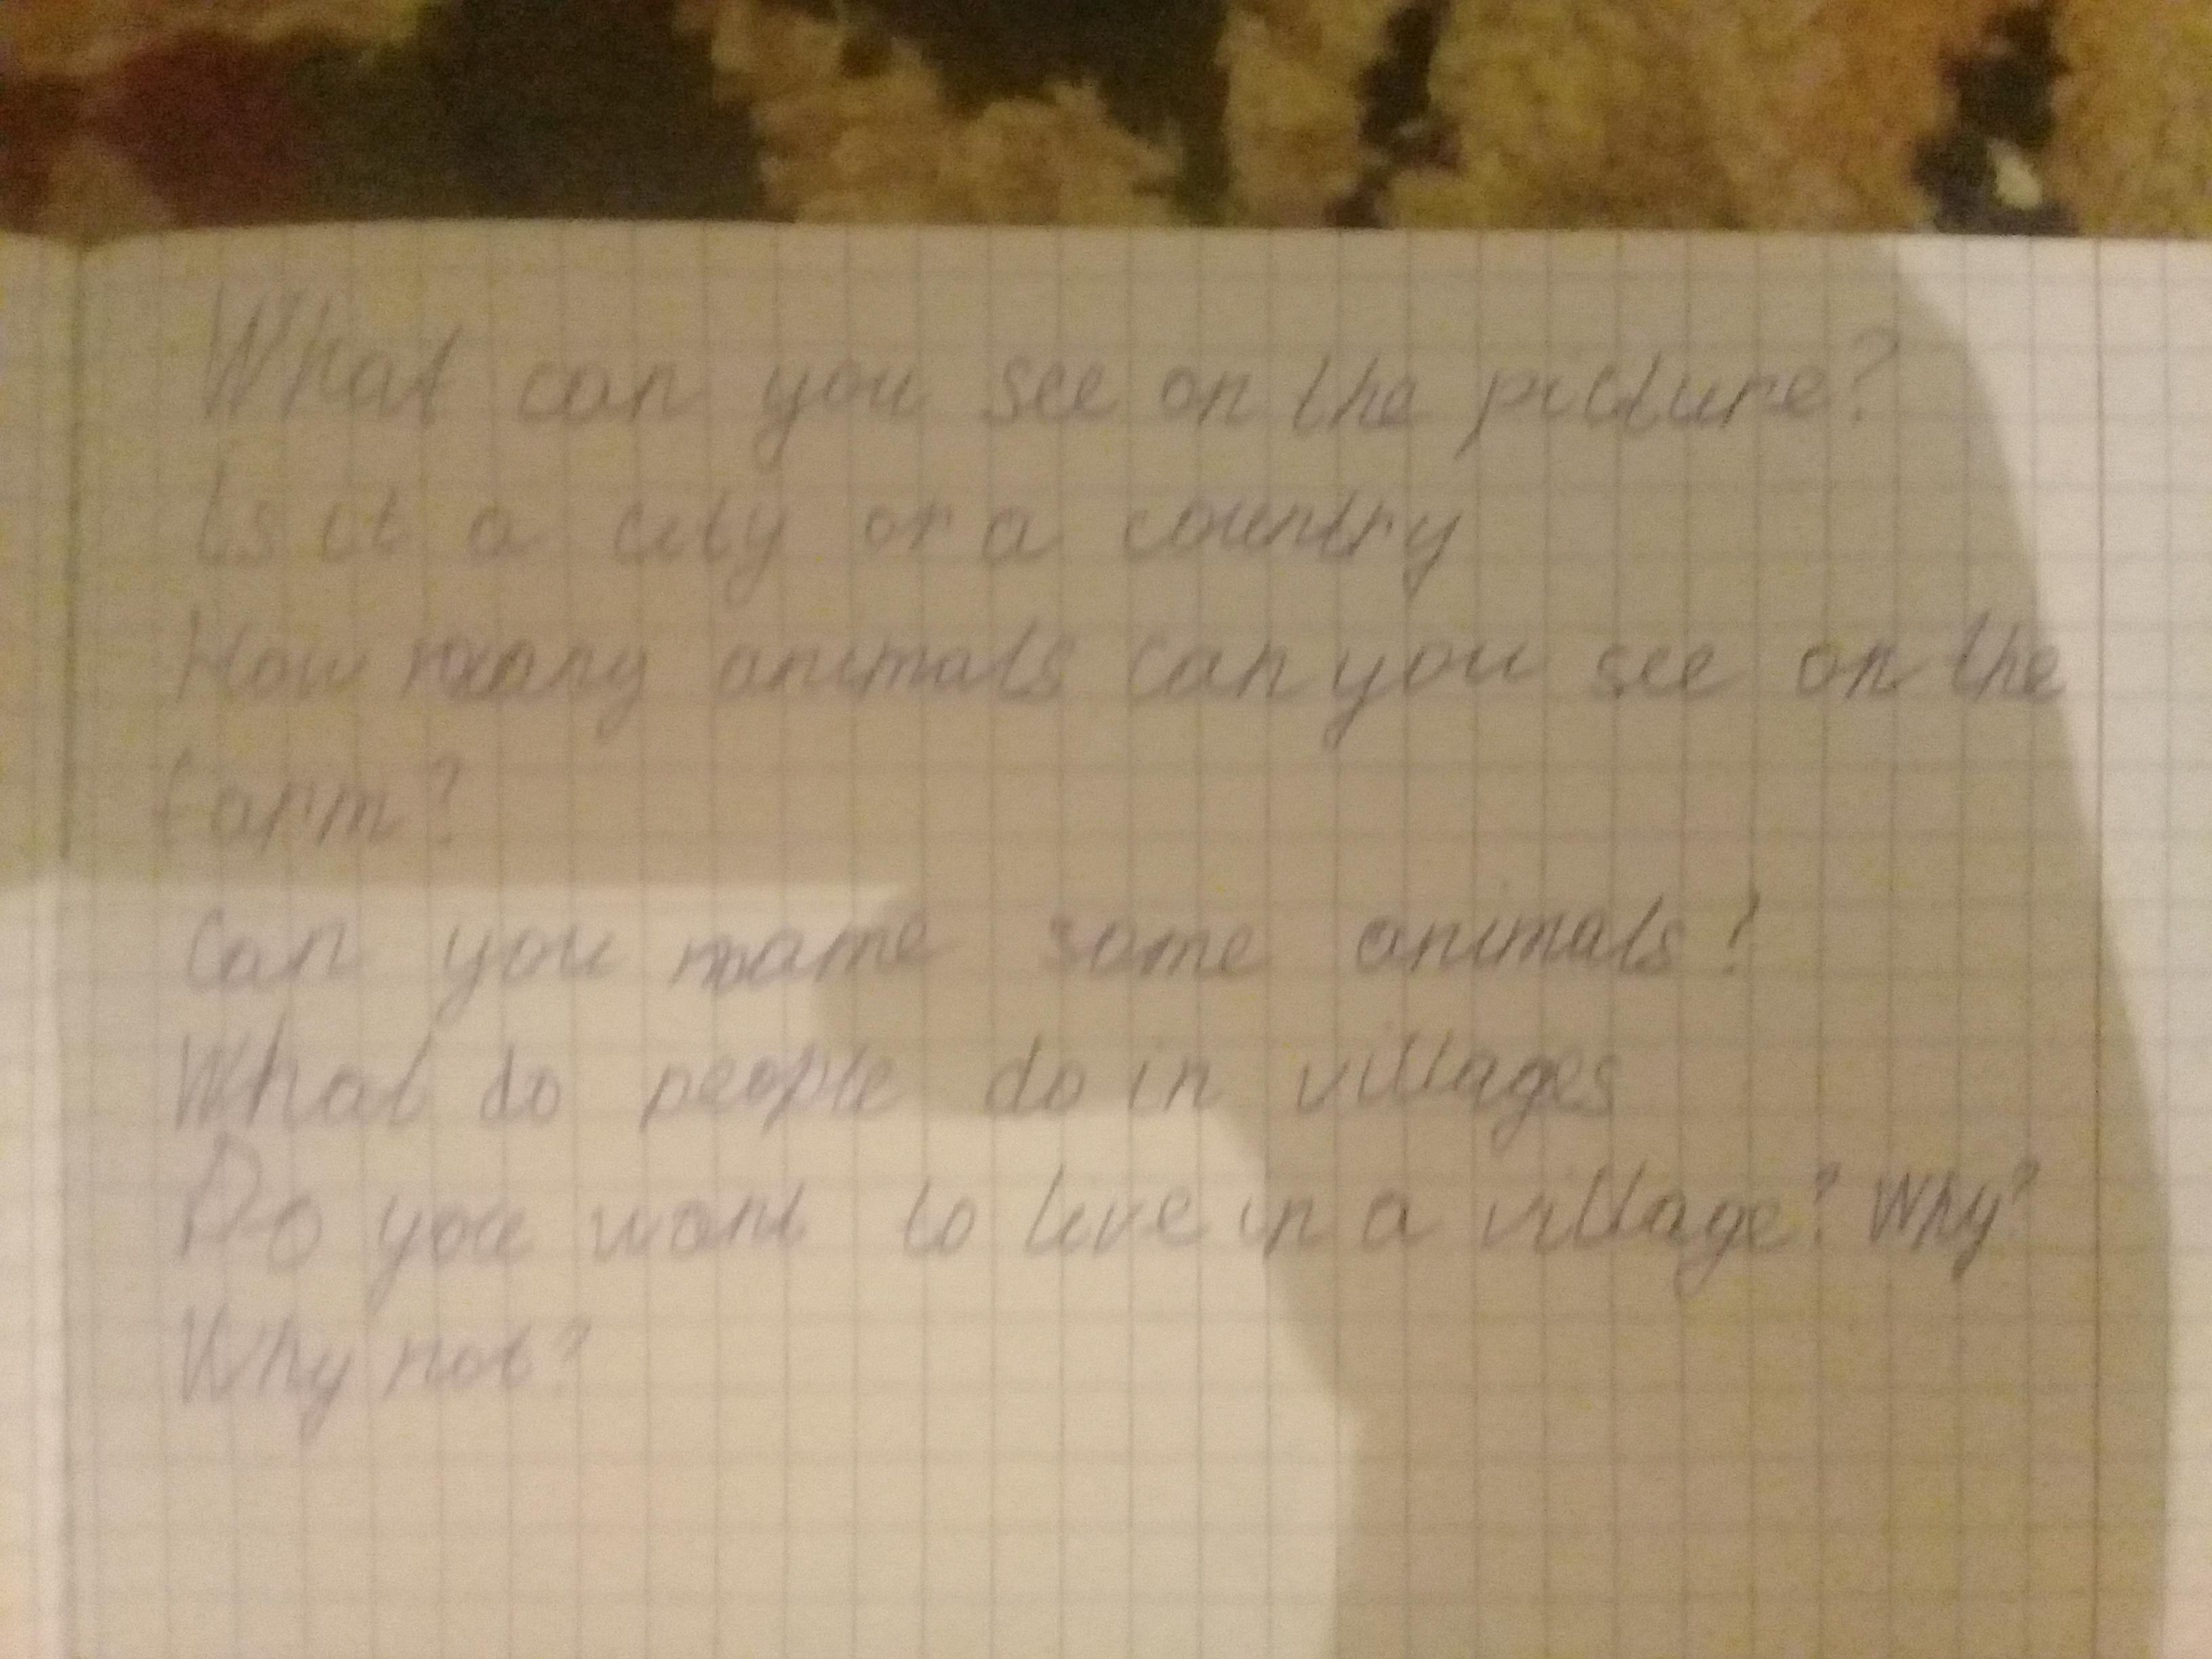 What can you see on the picture?
Is it a city or a country
How many animals can you see on the
farm?
Can you name some animals?
What do people do in villages
Do you want to live in a village? Why?
Why not?